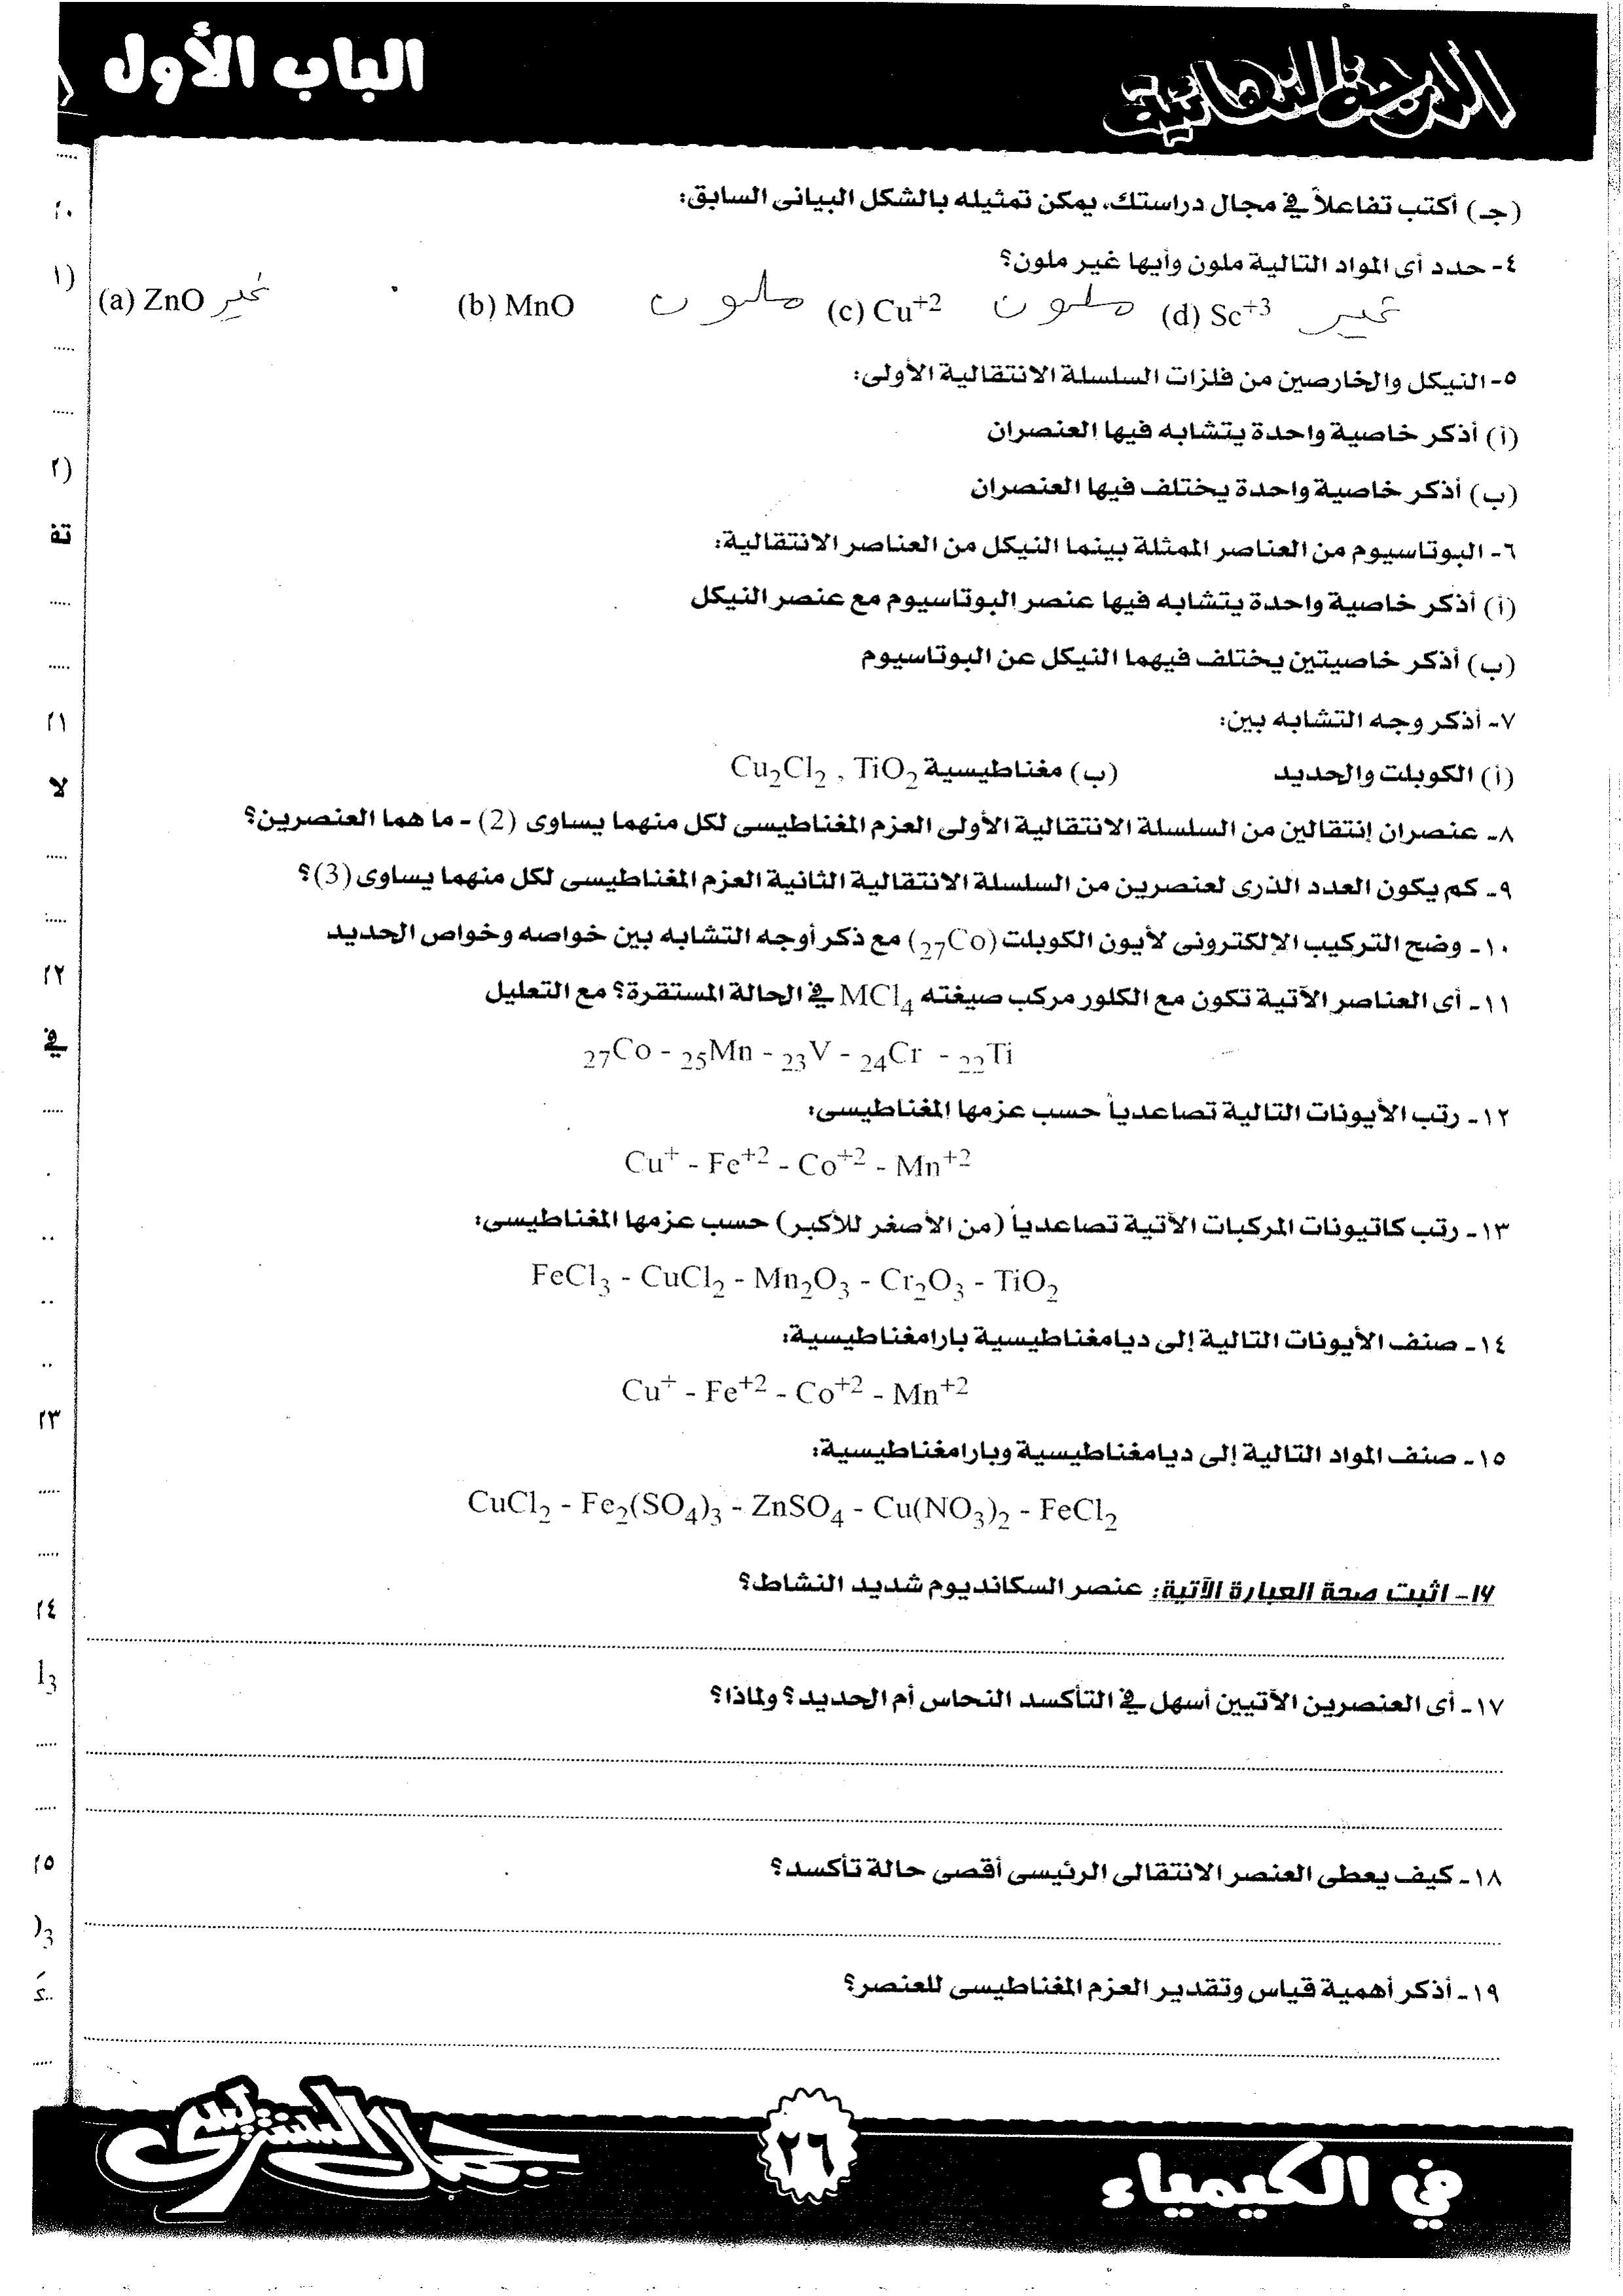 الدرجة النهائية
الباب الأول
(جـ) أكتب تفاعلاً في مجال دراستك، يمكن تمثيله بالشكل البيانى السابق:
٤- حدد أى المواد التالية ملون وأيها غير ملون؟
(a) ZnO غير (b) MnO ملون (c) Cu+2 ملون (d) Sc+3 غير
٥- النيكل والخارصين من فلزات السلسلة الانتقالية الأولى:
(أ) أذكر خاصية واحدة يتشابه فيها العنصران
(ب) أذكر خاصية واحدة يختلف فيها العنصران
٦- البوتاسيوم من العناصر الممثلة بينما النيكل من العناصر الانتقالية:
(أ) أذكر خاصية واحدة يتشابه فيها عنصر البوتاسيوم مع عنصر النيكل
(ب) أذكر خاصيتين يختلف فيهما النيكل عن البوتاسيوم
٧- أذكر وجه التشابه بين:
(أ) الكوبلت والحديد (ب) مغناطيسية Cu2Cl2 , TiO2
٨- عنصران إنتقالين من السلسلة الانتقالية الأولى العزم المغناطيسى لكل منهما يساوى (2) - ما هما العنصرين؟
٩- كم يكون العدد الذرى لعنصرين من السلسلة الانتقالية الثانية العزم المغناطيسى لكل منهما يساوى (3)؟
١٠- وضح التركيب الإلكترونى لأيون الكوبلت (27Co) مع ذكر أوجه التشابه بين خواصه وخواص الحديد
١١- أى العناصر الآتية تكون مع الكلور مركب صيغته MCl4 في الحالة المستقرة؟ مع التعليل
27Co - 25Mn - 23V - 24Cr - 22Ti
١٢- رتب الأيونات التالية تصاعدياً حسب عزمها المغناطيسى:
Cu+ - Fe+2 - Co+2 - Mn+2
١٣- رتب كاتيونات المركبات الآتية تصاعدياً (من الأصغر للأكبر) حسب عزمها المغناطيسى:
FeCl3 - CuCl2 - Mn2O3 - Cr2O3 - TiO2
١٤- صنف الأيونات التالية إلى ديامغناطيسية بارامغناطيسية:
Cu+ - Fe+2 - Co+2 - Mn+2
١٥- صنف المواد التالية إلى ديامغناطيسية وبارامغناطيسية:
CuCl2 - Fe2(SO4)3 - ZnSO4 - Cu(NO3)2 - FeCl2
١٦- اثبت صحة العبارة الآتية: عنصر السكانديوم شديد النشاط؟
١٧- أى العنصرين الآتيين أسهل في التأكسد النحاس أم الحديد؟ ولماذا؟
١٨- كيف يعطى العنصر الانتقالى الرئيسى أقصى حالة تأكسد؟
١٩- أذكر أهمية قياس وتقدير العزم المغناطيسى للعنصر؟
في الكيمياء
٢٦
جمال السنتريسى